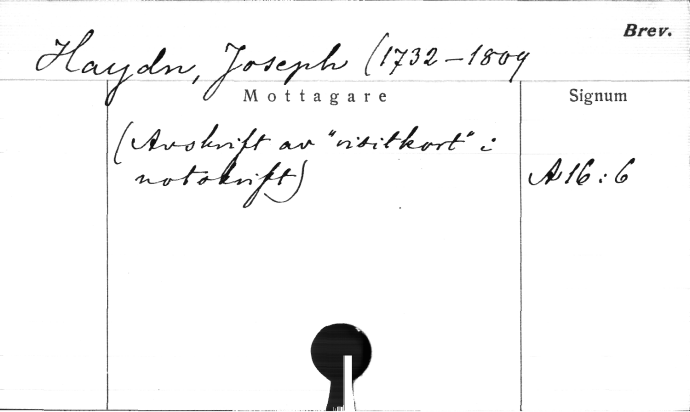 Brev.
Haydn, Joseph (1732-1809
Mottagare
Signum
(Avskrift av "visitkort" i
notskrift)
A16:6